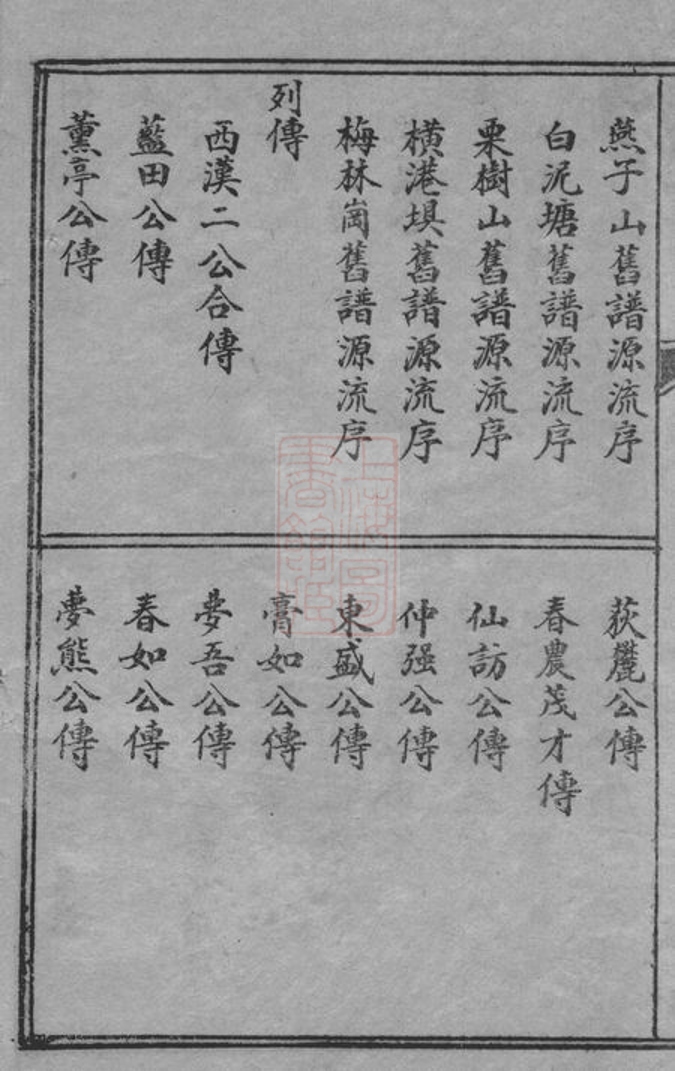 燕子山舊譜源流序
白泥塘舊譜源流序
栗樹山舊譜源流序
橫港垻舊譜源流序
梅林崗舊譜源流序
列傳
西漢二公合傳
藍田公傳
薰亭公傳
荻麓公傳
春農茂才傳
仙訪公傳
仲强公傳
東盛公傳
膏如公傳
夢吾公傳
春如公傳
夢熊公傳
上海圖書館藏